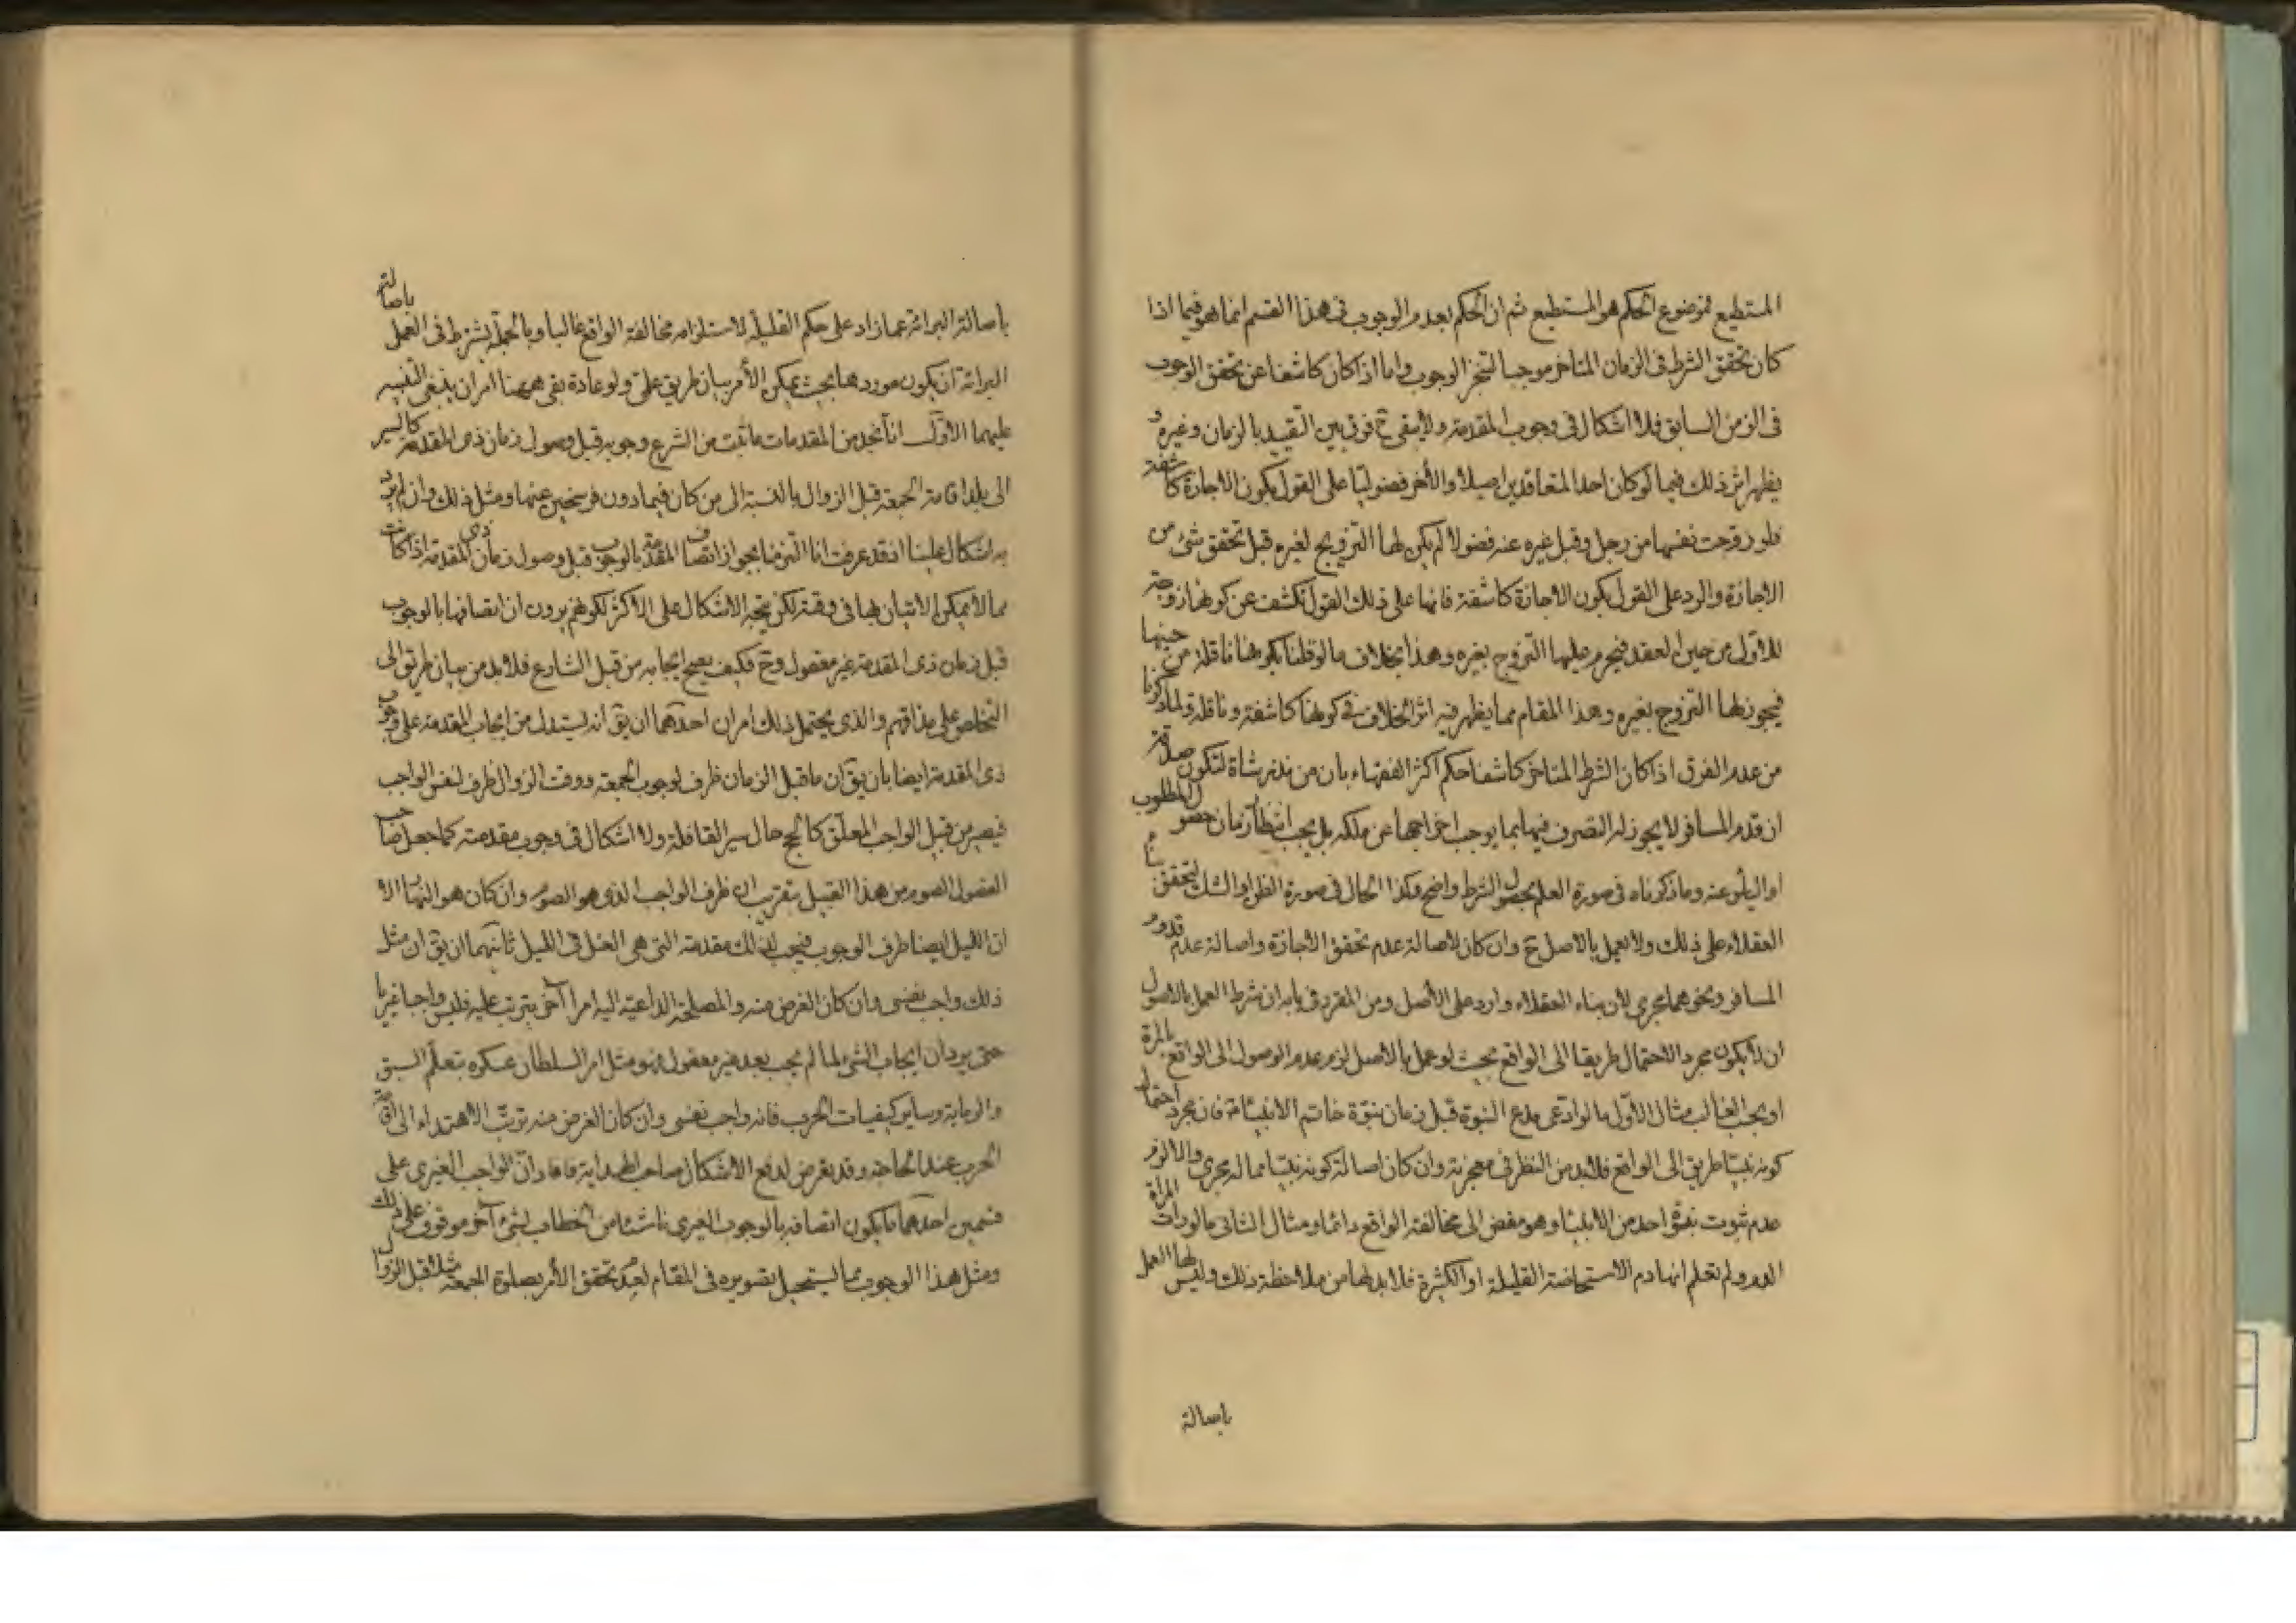 المستطيع فموضوع الحكم هو المستطيع ثم ان الحكم بعدم الوجوب فى هذا القسم انما هو فيما اذا
كان تحقق الشرط فى الزمان المتاخر موجبا لتنجز الوجوب واما اذا كان كاشفا عن تحقق الوجوب
فى الزمن السابق فلا اشكال فى وجوب المقدمة ولا يبقى ح فرق بين التقييد بالزمان وغيره و
يظهر اثر ذلك فيما لو كان احد المتعاقدين اصيلا والاخر فضوليا على القول بكون الاجازة كاشفة
فلو زوجت نفسها من رجل وقبل غيره عنه فضولا لم يكن لها التزويج لغيره قبل تحقق شئ من
الاجازة والرد على القول بكون الاجازة كاشفة فانها على ذلك القول تكشف عن كونها زوجة
للاول من حين العقد فيحرم عليها التزوج بغيره وهذا بخلاف ما لو قلنا بكونها ناقلة من حينها
فيجوز لها التزوج بغيره وهذا المقام مما يظهر فيه اثر الخلاف فى كونها كاشفة وناقلة ولما ذكرنا
من عدم الفرق اذا كان الشرط المتاخر كاشفا حكم اكثر الفقهاء بان من نذر شاة لتكون صدقة
ان قدم المسافر لا يجوز له التصرف فيها بما يوجب اخراجها عن ملكه بل يجب انتظار زمان حصول المطلوب
او الياس عنه وما ذكرناه فى صورة العلم بحصول الشرط واضح وكذا الحال فى صورة الظن او الشك لتحقق بناء
العقلاء على ذلك ولا يعمل بالاصل ح وان كان لاصالة عدم تحقق الاجازة واصالة عدم قدوم
المسافر ونحوهما مجرى لان بناء العقلاء وارد على الاصل ومن المقرر فى بابه ان شرط العمل بالاصول
ان لا يكون مجرد الاحتمال طريقا الى الواقع بحيث لو عمل بالاصل لزم عدم الوصول الى الواقع بالمرة
او بحسب الغالب مثال الاول ما لو ادعى مدع النبوة قبل زمان نبوة خاتم الانبياء فان مجرد احتمال
كونه نبيا طريق الى الواقع فلا بد من النظر فى معجزته وان كان اصالة كونه نبيا مما له مجرى والا لزم
عدم ثبوت نبوة احد من الانبياء وهو مفض الى مخالفة الواقع دائما ومثال الثانى ما لو رات المراة
الدم ولم تعلم انها دم الاستحاضة القليلة او الكثيرة فلا بد لها من ملاحظة ذلك وليس لها العمل
باصالة
باصالة
باصالة البرائة عما زاد على حكم القليلة لاستلزامه مخالفة الواقع غالبا وبالجملة يشترط فى العمل
البرائة ان يكون موردها بحيث يمكن الأمر بيان طريق على ولو عادة بقى ههنا امران ينبغى التنبيه
عليهما الاول انا نجد من المقدمات ما ثبت من الشرع وجوبه قبل وصول زمان ذى المقدمة كالسير
الى بلد اقامة الجمعة قبل الزوال بالنسبة الى من كان فيما دون فرسخين عنها ومثل ذلك وان لم يرد
به اشكال علينا اذ قد عرفت انا التزمنا بجواز اتصاف المقدمة بالوجوب قبل وصول زمان ذى المقدمة اذا كانت
مما لا يمكن الاتيان بها فى وقته لكن يتجه الاشكال على الاكثر لكونهم يرون ان اتصافها بالوجوب
قبل زمان ذى المقدمة غير معقول وح فكيف يصح ايجابه من قبل الشارع فلا بد من بيان طريق الى
التخلص على مذاقهم والذى يحتمل ذلك امران احدهما ان يق انه يستدل من ايجاب المقدمة على وجوب
ذى المقدمة ايضا بان يق ان ما قبل الزمان ظرف لوجوب الجمعة ووقت الزوال ظرف لنفس الواجب
فيصير من قبيل الواجب المعلق كالحج حال سير القافلة ولا اشكال فى وجوب مقدمته كما جعل صاحب
الفصول الصوم من هذا القبيل بتقريب ان ظرف الواجب الذى هو الصوم وان كان هو النهار الا
ان الليل ايضا ظرف الوجوب فيجب لذلك مقدمته التى هى الغسل فى الليل ثانيهما ان يق ان مثل
ذلك واجب نفسى وان كان الغرض منه والمصلحة الداعية اليه امرا آخر يترتب عليه فليس واجبا غيريا
حتى يرد ان ايجاب الشئ لما لم يجب بعد غير معقول فهو مثل امر السلطان عسكره بتعلم السبق
والرماية وساير كيفيات الحرب فانه واجب نفسى وان كان الغرض منه ترتب الاهتداء الى اقامة
الحرب عند الحاجة وقد تعرض لدفع الاشكال صاحب الهداية فافاد ان الواجب الغيرى على
قسمين احدهما ما يكون اتصافه بالوجوب الغيرى ناشئا من الخطاب لشئ آخر موقوف على ذلك
ومثل هذا الوجوب مما يستحيل تصويره فى المقام لعدم تحقق الأمر بصلوة الجمعة مثلا قبل الزوال